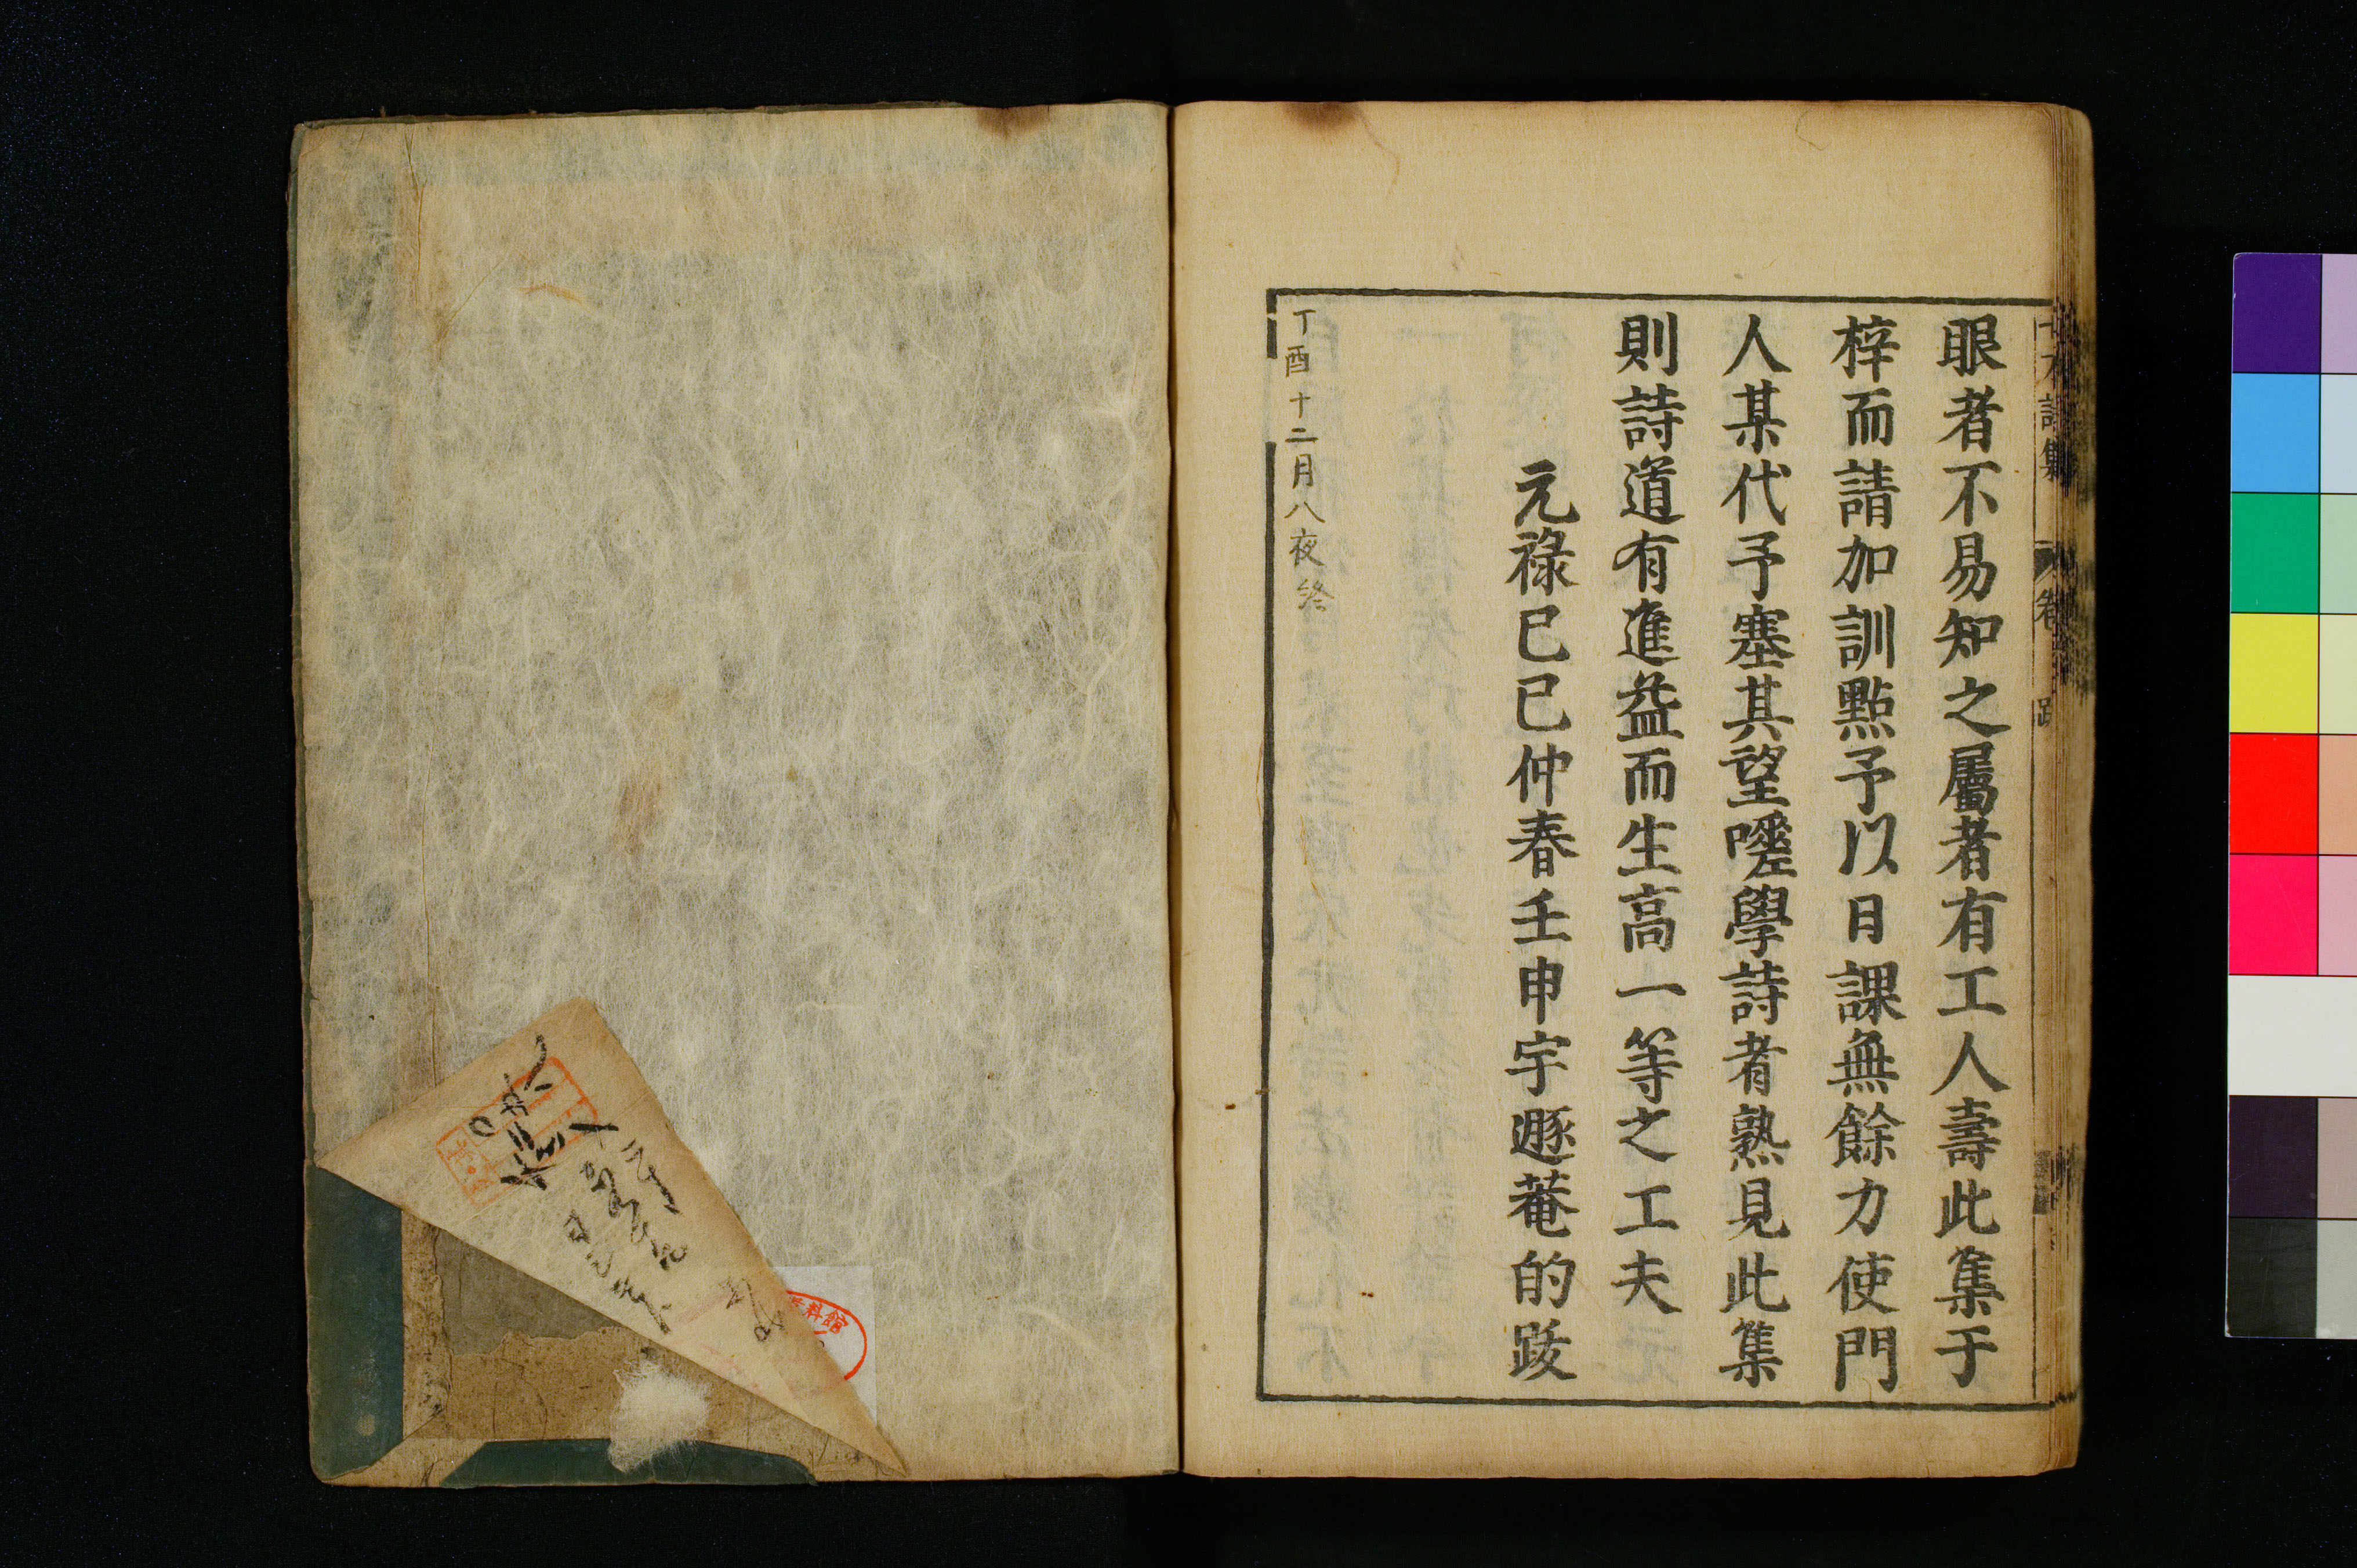 眼者不易知之屬者有工人壽此集于
梓而請加訓點予以日課無餘力使門
人某代予塞其望嗟學詩者熟見此集
則詩道有進益而生高一等之工夫
元祿己巳仲春壬申宇遯菴的跋
丁酉十二月八夜終
料館